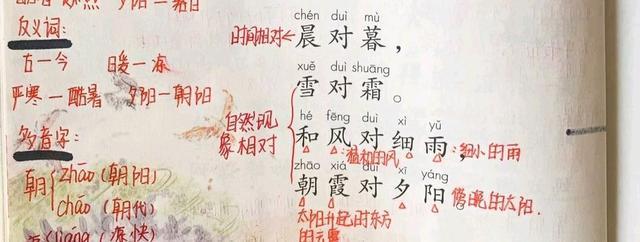 夕阳—朝日
反义词:
古—今 日暖—冻
严寒—酷暑 夕阳—朝阳
多音字:
朝 zhāo(朝阳)
cháo(朝代)
liáng(凉快)
chén duì mù
时间相对←晨对暮，
xuě duì shuāng
雪对霜。
自然现象相对
hé fēng duì xì yǔ
和风对细雨，
:温和的风 :细小的雨
zhāo xiá duì xī yáng
朝霞对夕阳
太阳升起时东方的云霞
傍晚的太阳.